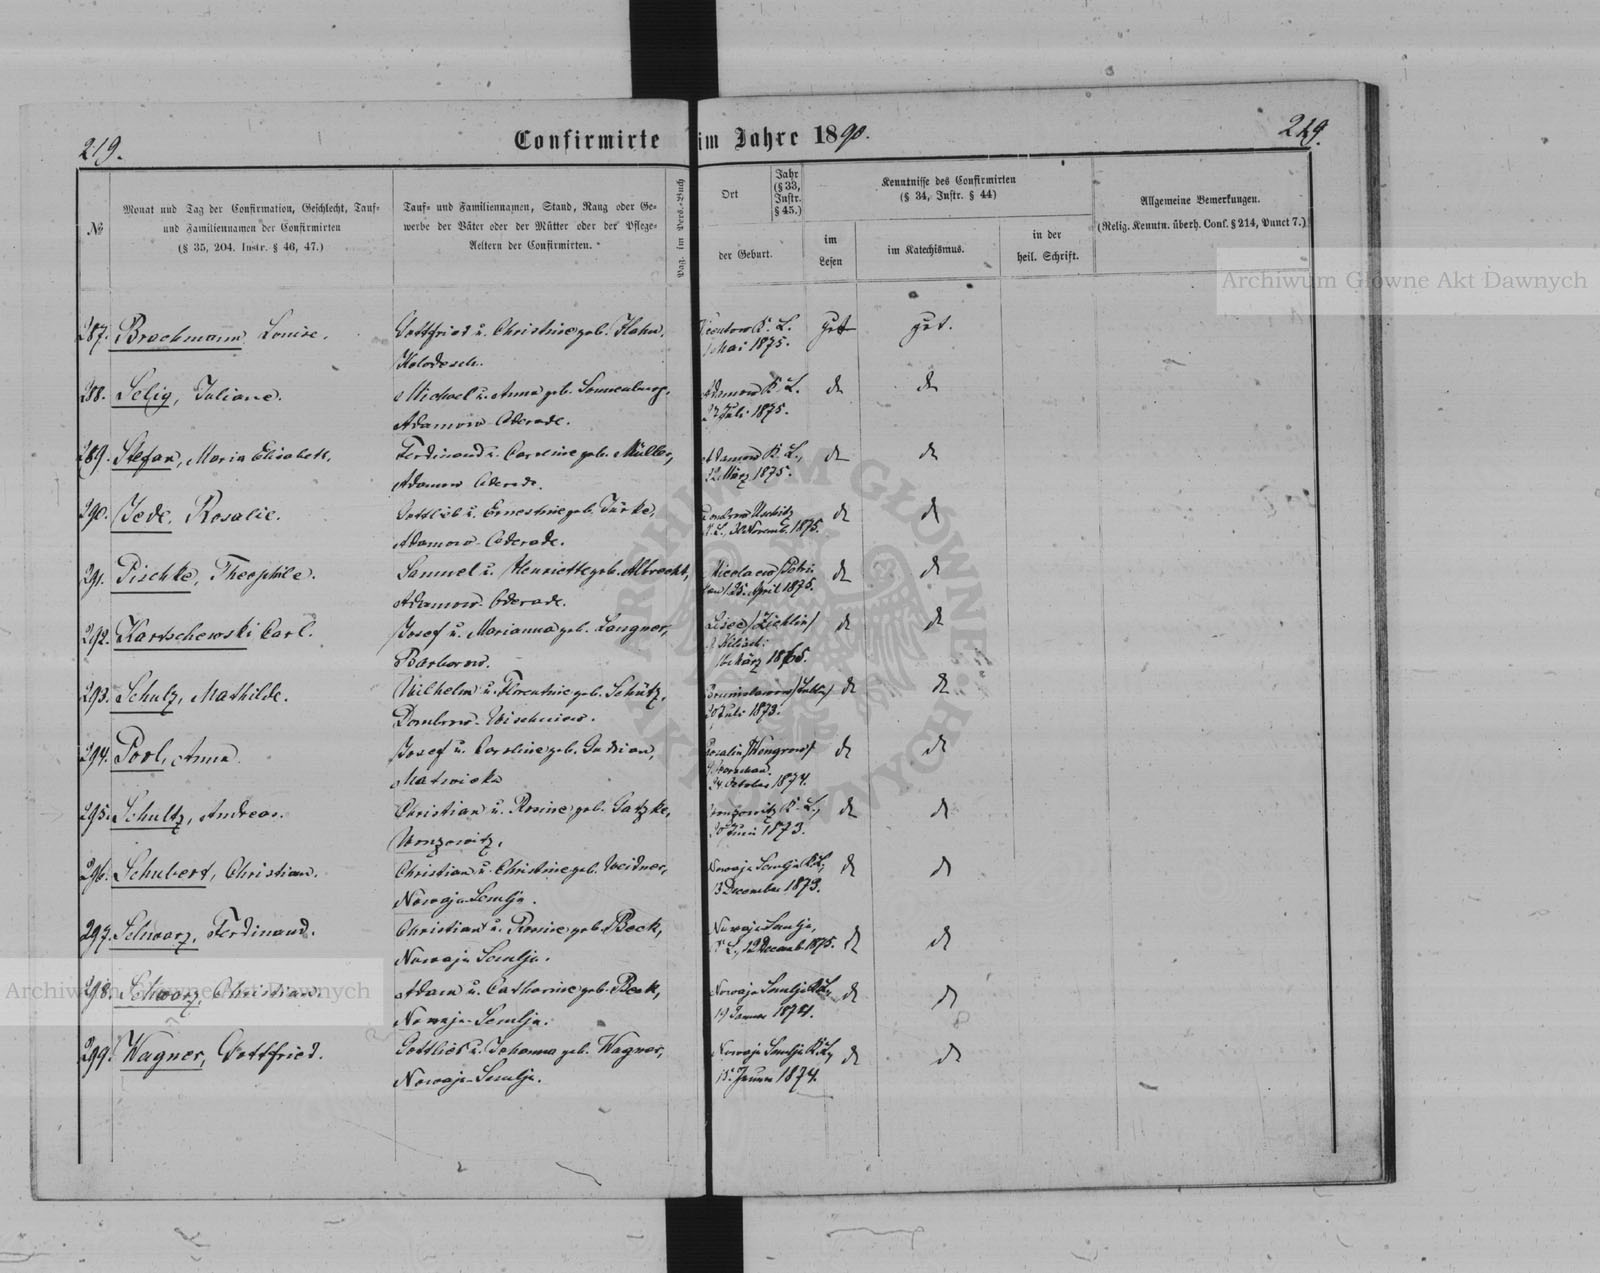 219.
Confirmirte im Jahre 1890.
219.
№
Monat und Tag der Confirmation, Geschlecht, Tauf-
und Familiennamen der Confirmirten
(§ 35, 204. Instr. § 46, 47.)
Tauf- und Familiennamen, Stand, Rang oder Ge-
werbe der Väter oder der Mütter oder der Pflege-
Aeltern der Confirmirten.
Pag. im Pers.-Buch
Ort
Jahr
(§ 33,
Instr.
§ 45.)
der Geburt.
Kenntnisse des Confirmirten
(§ 34, Instr. § 44)
im
Lesen
im Katechismus.
in der
heil. Schrift.
Allgemeine Bemerkungen.
(Relig. Kenntn. überh. Conf. § 214, Punct 7.)
287. Brachmann Louise.
Gottfried u. Christine geb. Hahn,
Kolodesch.
K. L.
Mai 1875.
gut
gut.
288. Selig, Juliane.
Michael u. Anna geb. Sonnenburg,
Adamow-Oderade.
Adamow K. L.
27 Juli 1875.
do
do
289. Stefan, Maria Elisabeth,
Ferdinand u. Caroline geb. Müller,
Adamow Oderade.
Adamow K. L.,
12 März 1875.
do
do
290. Jede, Rosalie.
Gottlieb u. Ernestine geb. Türke,
Adamow-Oderade.
K. L., 30 Novemb. 1875.
do
do
291. Pischke, Theophile.
Samuel u. Henriette geb. Albrecht,
Adamow-Oderade.
Nicolaew/Petri
kau/25. April 1875.
do
do
292. Kartschewski Carl.
Josef u. Marianna geb. Langner,
Barborow.
März 1865.
do
do
293. Schulz, Mathilde.
Wilhelm u. Florentine geb. Schütz,
Dombrow-Wischniow.
20 Juli 1873.
do
do
294. Pool, Anna.
Josef u. Caroline geb. Gudrian,
Matweicha
Rosalin/Wengrow/
G. Warschau.
24 October 1874.
do
do
295. Schultz, Andreas.
Christian u. Rosine geb. Gatzke,
Wonzowitz.
Wonzowitz K. L.,
20 Juni 1873.
do
do
296. Schubert, Christian.
Christian u. Christine geb. Weidner,
Nowaja-Semlja.
Nowaja Semlja K. L.,
13 December 1873.
do
do
297. Schwarz, Ferdinand.
Christian u. Rosine geb. Beck,
Nowaja Semlja.
Nowaja Semlja,
K. L., 12 Decemb. 1875.
do
do
298. Schwarz, Christian.
Adam u. Catharine geb. Beck,
Nowaja-Semlja.
Nowaja Semlja K. L.,
19 Januar 1874.
do
do
299. Wagner, Gottfried.
Gottlieb u. Johanna geb. Wagner,
Nowaja-Semlja.
Nowaja Semlja K. L.,
15. Januar 1874.
do
do
Archiwum Główne Akt Dawnych
Archiwum Główne Akt Dawnych
ARCHIWUM GŁÓWNE AKT DAWNYCH